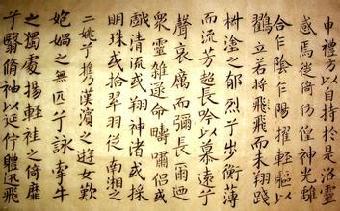 申禮防以自持於是洛靈
感焉徙倚仿偟神光離
合乍陰乍陽擢輕軀以
鶴立若將飛飛而未翔踐
椒塗之郁烈兮步蘅薄
而流芳超長吟以慕遠兮
聲哀厲而彌長爾迺
衆靈雜遝命疇嘯侶或
戲清流或翔神渚或采
明珠或拾翠羽從南湘之
二姚兮攜漢濱之遊女歎
媧之無匹兮詠牽牛
之獨處揚輕袿之倚靡
兮翳脩袖以延佇體迅飛